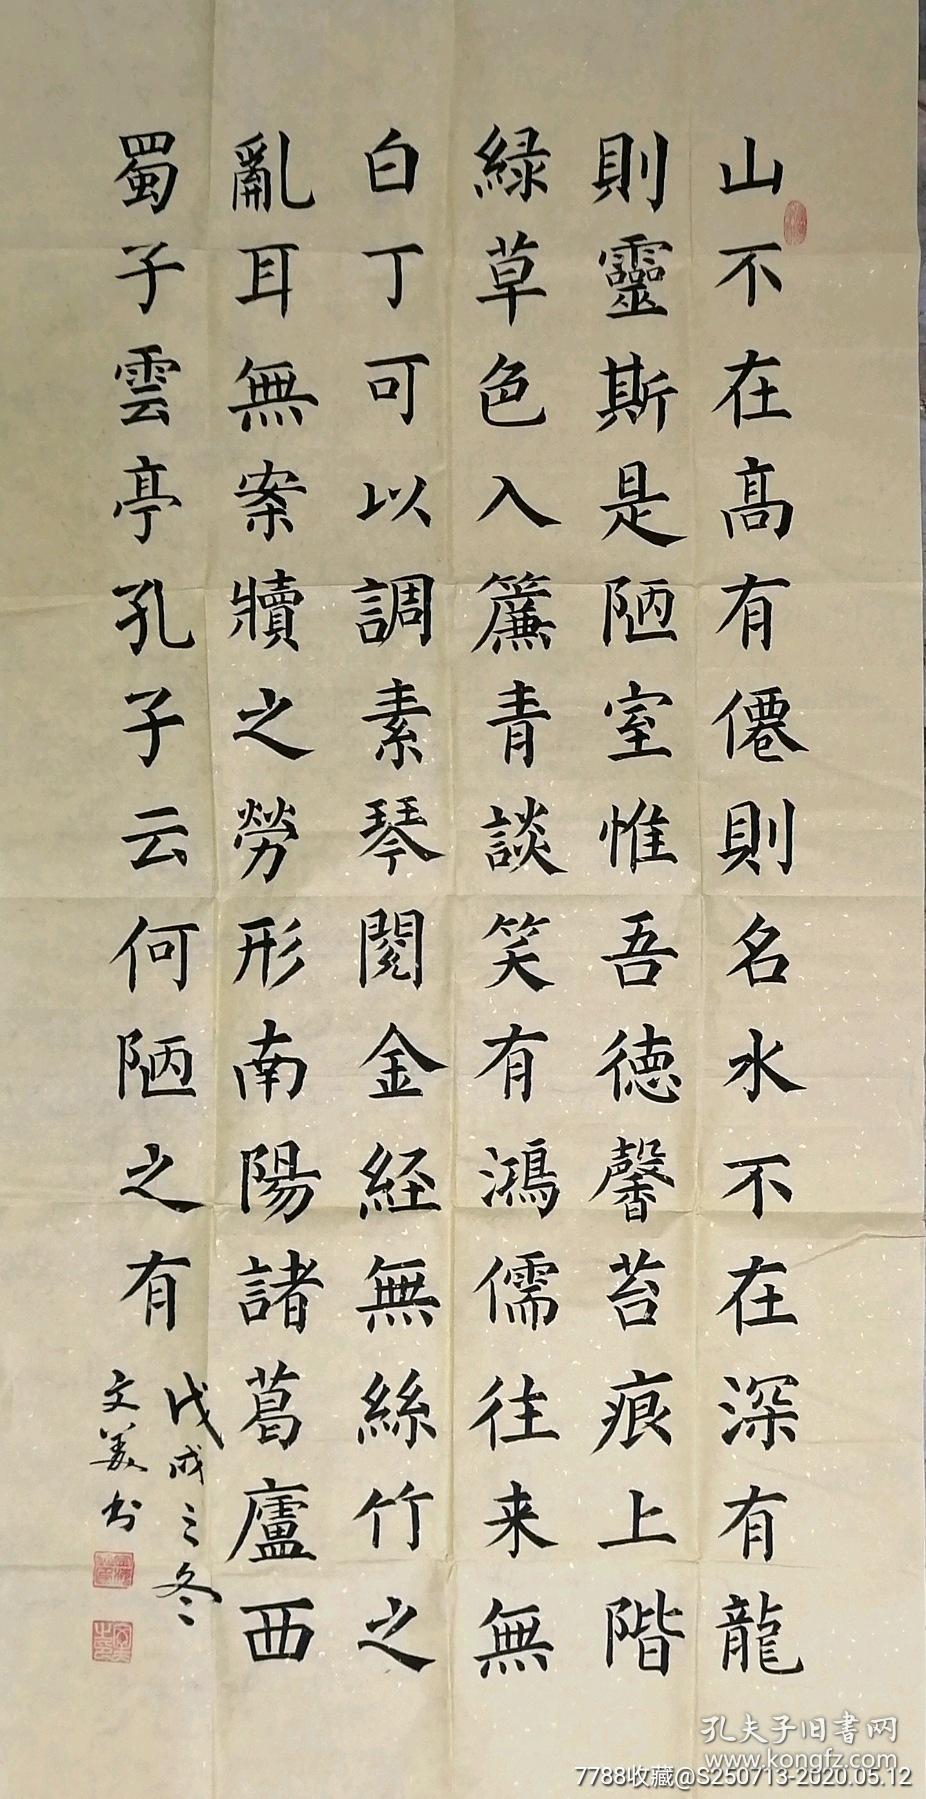 山不在高有僊則名水不在深有龍
則靈斯是陋室惟吾德馨苔痕上階
緑草色入簾青談笑有鴻儒往来無
白丁可以調素琴閱金経無絲竹之
亂耳無案牘之勞形南陽諸葛廬西
蜀子雲亭孔子云何陋之有
戊戌之冬
文美书
孔夫子旧書网
www.kongfz.com
7788收藏@S250713-2020.05.12